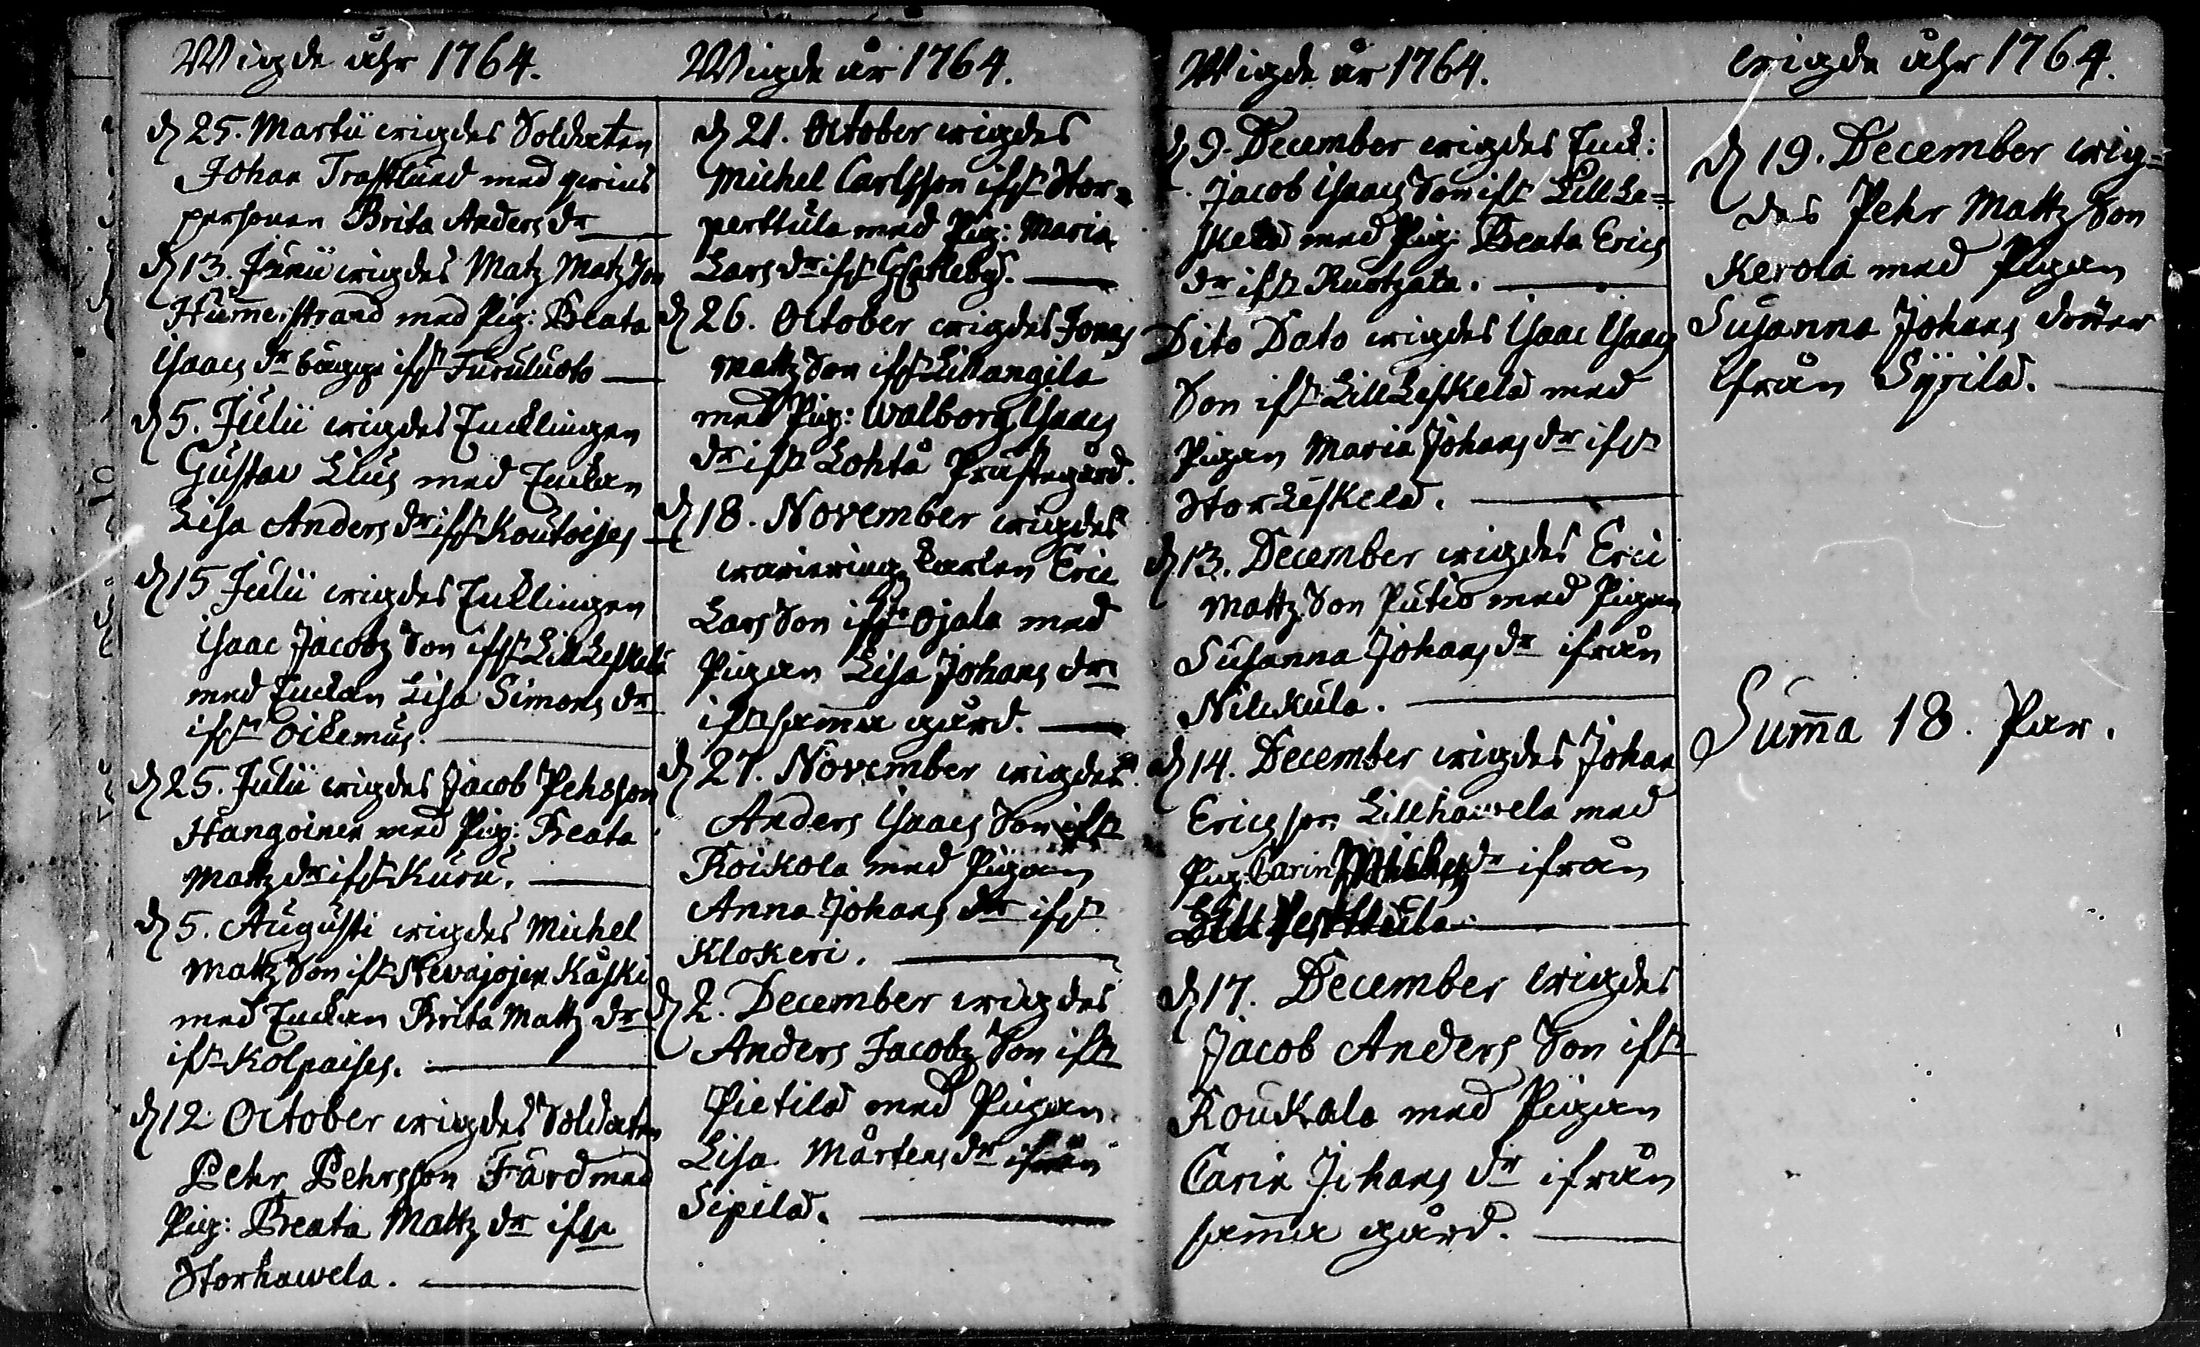 Wigde åhr 1764.
d 25. Martii wigdes Soldaten
Johan Trafflund med qwins
personen Brita Anders dr
d 13. Junii wigdes Matz Matz Son
Humerstrand med Pig: Beata
Isaacs dr bägge ifr Furuluoto
d 5. Julii wigdes Encklingen
Gustav Lius med Enckan
Lisa Anders dr ifr Koutoises
d 15 Julii wigdes Encklingen
Isaac Jacobz Son ifr LillLeskelä
med Enckan Lisa Simons dr
ifr Oikemus.
d 25. Julii wigdes Jacob Pehrsson
Hangoinen med Pig: Beata
Mattz dr ifr Kuru.
d 5. Augusti wigdes Michel
Mattz Son ifr Nevajojen Käski
med Enckan Brita Mattz dr
ifr Kolpaises.
d 12 October wigdes Soldaten
Pehr Pehrsson Färd med
Pig: Beata Mattz dr ifr
Storhawela.
Wigde år 1764.
d 21. October wigdes
Michel Carlsson ifr Stor=
perttula med Pig: Maria
Lars dr ifr
d 26. October wigdes Jonas
Mattz Son ifr Lillangila
med Pig: Walborg Isaacs
dr ifr Lohtå Prästegård.
d 18. November wigdes
karlen Eric
Lars Son ifr Ojala med
Pigan Lisa Johans dr
ifr sama gård.
d 27. November wigdes
Anders Isaacs Son ifr
Roikola med Pigan
Anna Johans dr ifr
Klokeri.
d 2. December wigdes
Anders Jacobz Son ifr
Pietilä med Pigan
Lisa Mårtens dr ifrån
Sipilä.
Wigde år 1764.
d 9. December wigdes Enck:
Jacob Isaacs Son ifr LillLe=
skelä med Pig: Beata Erics
dr ifr Ruotzala.
Dito Dato wigdes Isaac Isaacs
Son ifr LillLeskelä med
Pigan Maria Johans dr ifr
StorLeskelä.
d 13. December wigdes Eric
Mattz Son Putio med Pigan
Susanna Johans dr ifrån
Nikkula.
d 14. December wigdes Johan
Ericsson Lillhawela med
Pig: Carin Michels dr ifrån
Lill Perttula
d 17. December wigdes
Jacob Anders Son ifr
Roukala med Pigan
Carin Johans dr ifrån
sama gård.
wigde åhr 1764.
d 19. December wig=
des Pehr Mattz Son
Kerola med Pigan
Susanna Johans dotter
ifrån Syrilä.
Suma 18. Par.